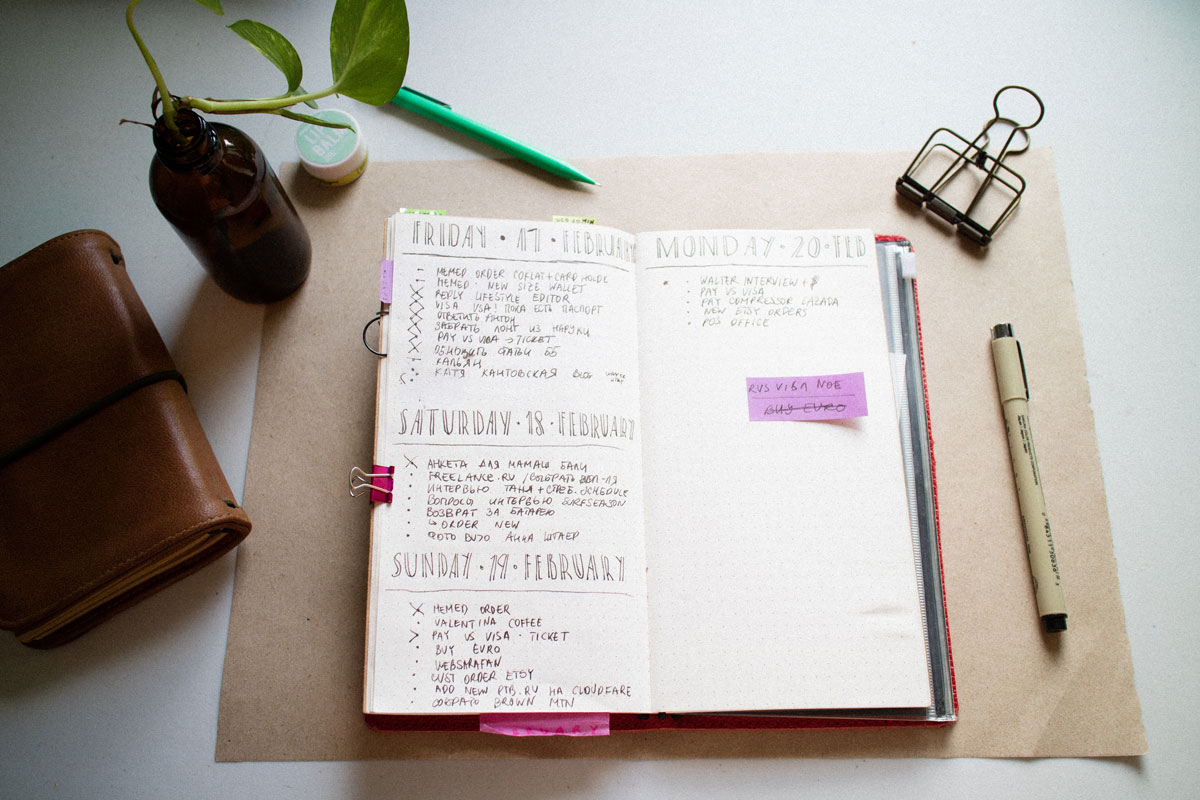 FRIDAY · 17 · FEBRUARY
MEMED ORDER COKLAT + CARD HOLDE
MEMED · NEW SIZE WALLET
REPLY LIFESTYLE EDITOR
VISA USA! ПОКА ЕСТЬ ПАСПОРТ
ОТВЕТИТЬ АНТОН
ЗАБРАТЬ ЛОНГ ИЗ
PAY VS VISA → TICKET
ОБНОВИТЬ СТАТЬИ ББ
КАЛЬЯН
КАТЯ ХАИТОВСКАЯ BLOG
SATURDAY · 18 · FEBRUARY
АНКЕТА ДЛЯ МАМАШ БАЛИ
FREELANCE.RU /
ИНТЕРВЬЮ ТАНЯ + SCHEDULE
ВОПРОСЫ ИНТЕРВЬЮ SURFSEASON
ВОЗВРАТ ЗА БАТАРЕЮ
↳ ORDER NEW
ФОТО АННА ШТАЕР
SUNDAY · 19 · FEBRUARY
MEMED ORDER
VALENTINA COFFEE
PAY VS VISA - TICKET
BUY EURO
WEBSARAFAN
CUST ORDER ETSY
ADD NEW PTB.RU НА CLOUDFARE
BROWN MTN
MONDAY · 20 · FEB
WALTER INTERVIEW + $
PAY VS VISA
PAY COMPRESSOR LAZADA
NEW ETSY ORDERS
POS OFFICE
BUY EURO